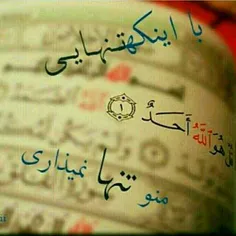 با اینکه تنهایی
هُوَ ٱللَّهُ أَحَدٌ ١
منو تنها نمیذاری